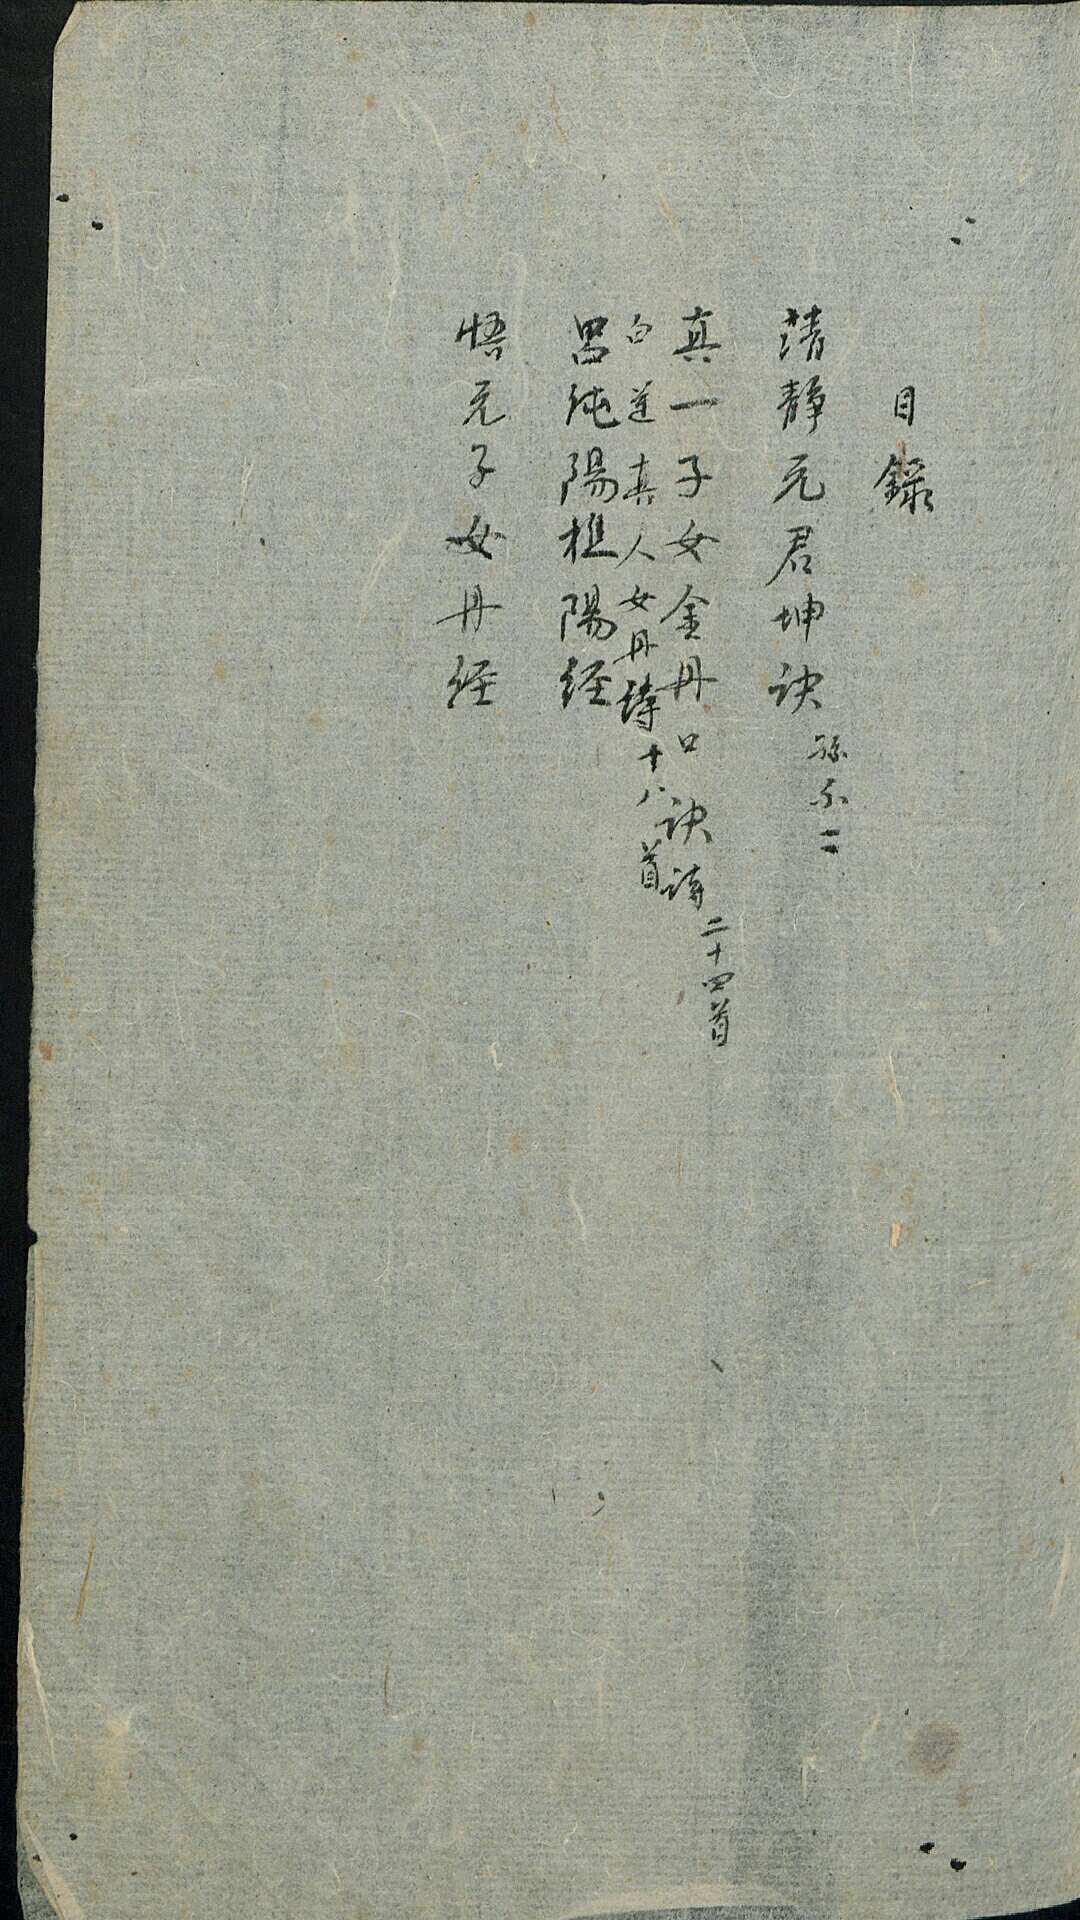 目錄
清靜元君坤訣 孫不二
真一子女金丹口訣詩 二十四首
白蓮真人女丹詩十八首
呂純陽樵陽經
悟元子女丹經